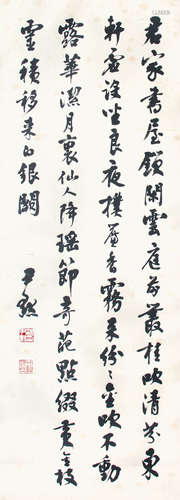 君家書屋鎖閑雲庭前叢桂吹清芬東
軒客設坐良夜撲簾香霧來紛紛金吹不動
露華潔月裏仙人降瑤節奇葩點綴黃金枝
雪積移來白銀闕
尹默